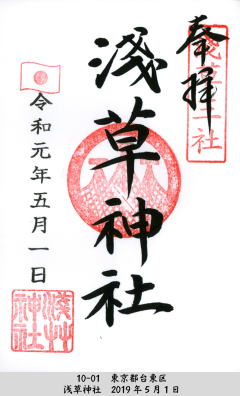 奉拝
浅草神社
淺草神社
令和元年五月一日
淺草神社
10-01 東京都台東区
浅草神社 2019年5月1日